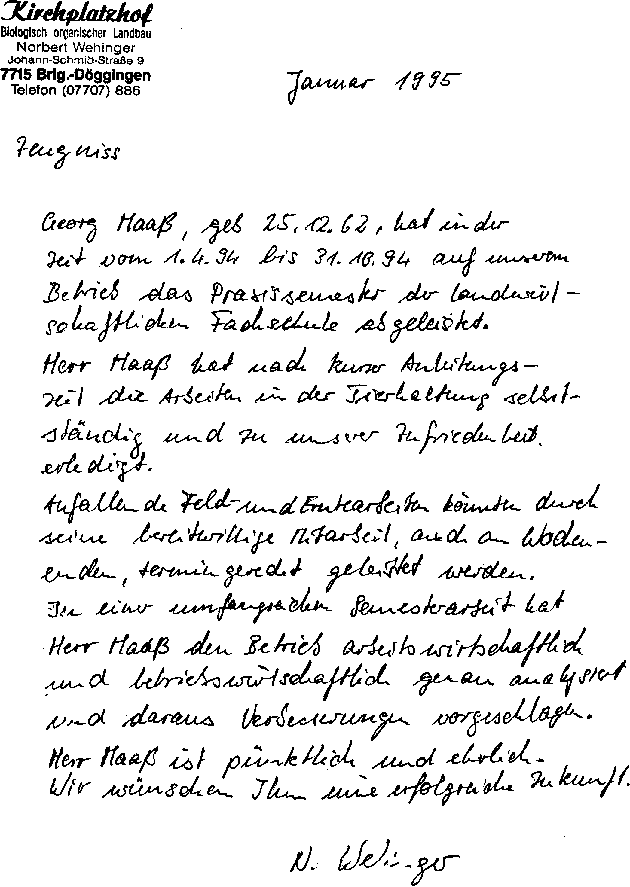 Kirchplatzhof
Biologisch organischer Landbau
Norbert Wehinger
Johann-Schmid-Straße 9
7715 Brlg.-Döggingen
Telefon (07707) 886
Januar 1995
Zeugniss
Georg Maaß, geb 25.12.62, hat in der
Zeit vom 1.4.94 bis 31.10.94 auf unserem
Betrieb das Praxissemester der landwirt-
schaftlichen Fachschule abgeleistet.
Herr Maaß hat nach kurzer Anleitungs-
zeit die Arbeiten in der Tierhaltung selbst-
ständig und zu unserer Zufriedenheit.
erledigt.
Anfallende Feld- und Erntearbeiten konnten durch
seine bereitwillige Mitarbeit, auch an Wochen-
enden, termingerecht geleistet werden.
In einer umfangreichen Semesterarbeit hat
Herr Maaß den Betrieb arbeitswirtschaftlich
und betriebswirtschaftlich genau analysiert
und daraus Verbesserungen vorgeschlagen.
Herr Maaß ist pünktlich und ehrlich.
Wir wünschen Ihm eine erfolgreiche Zukunft.
N. Wehinger